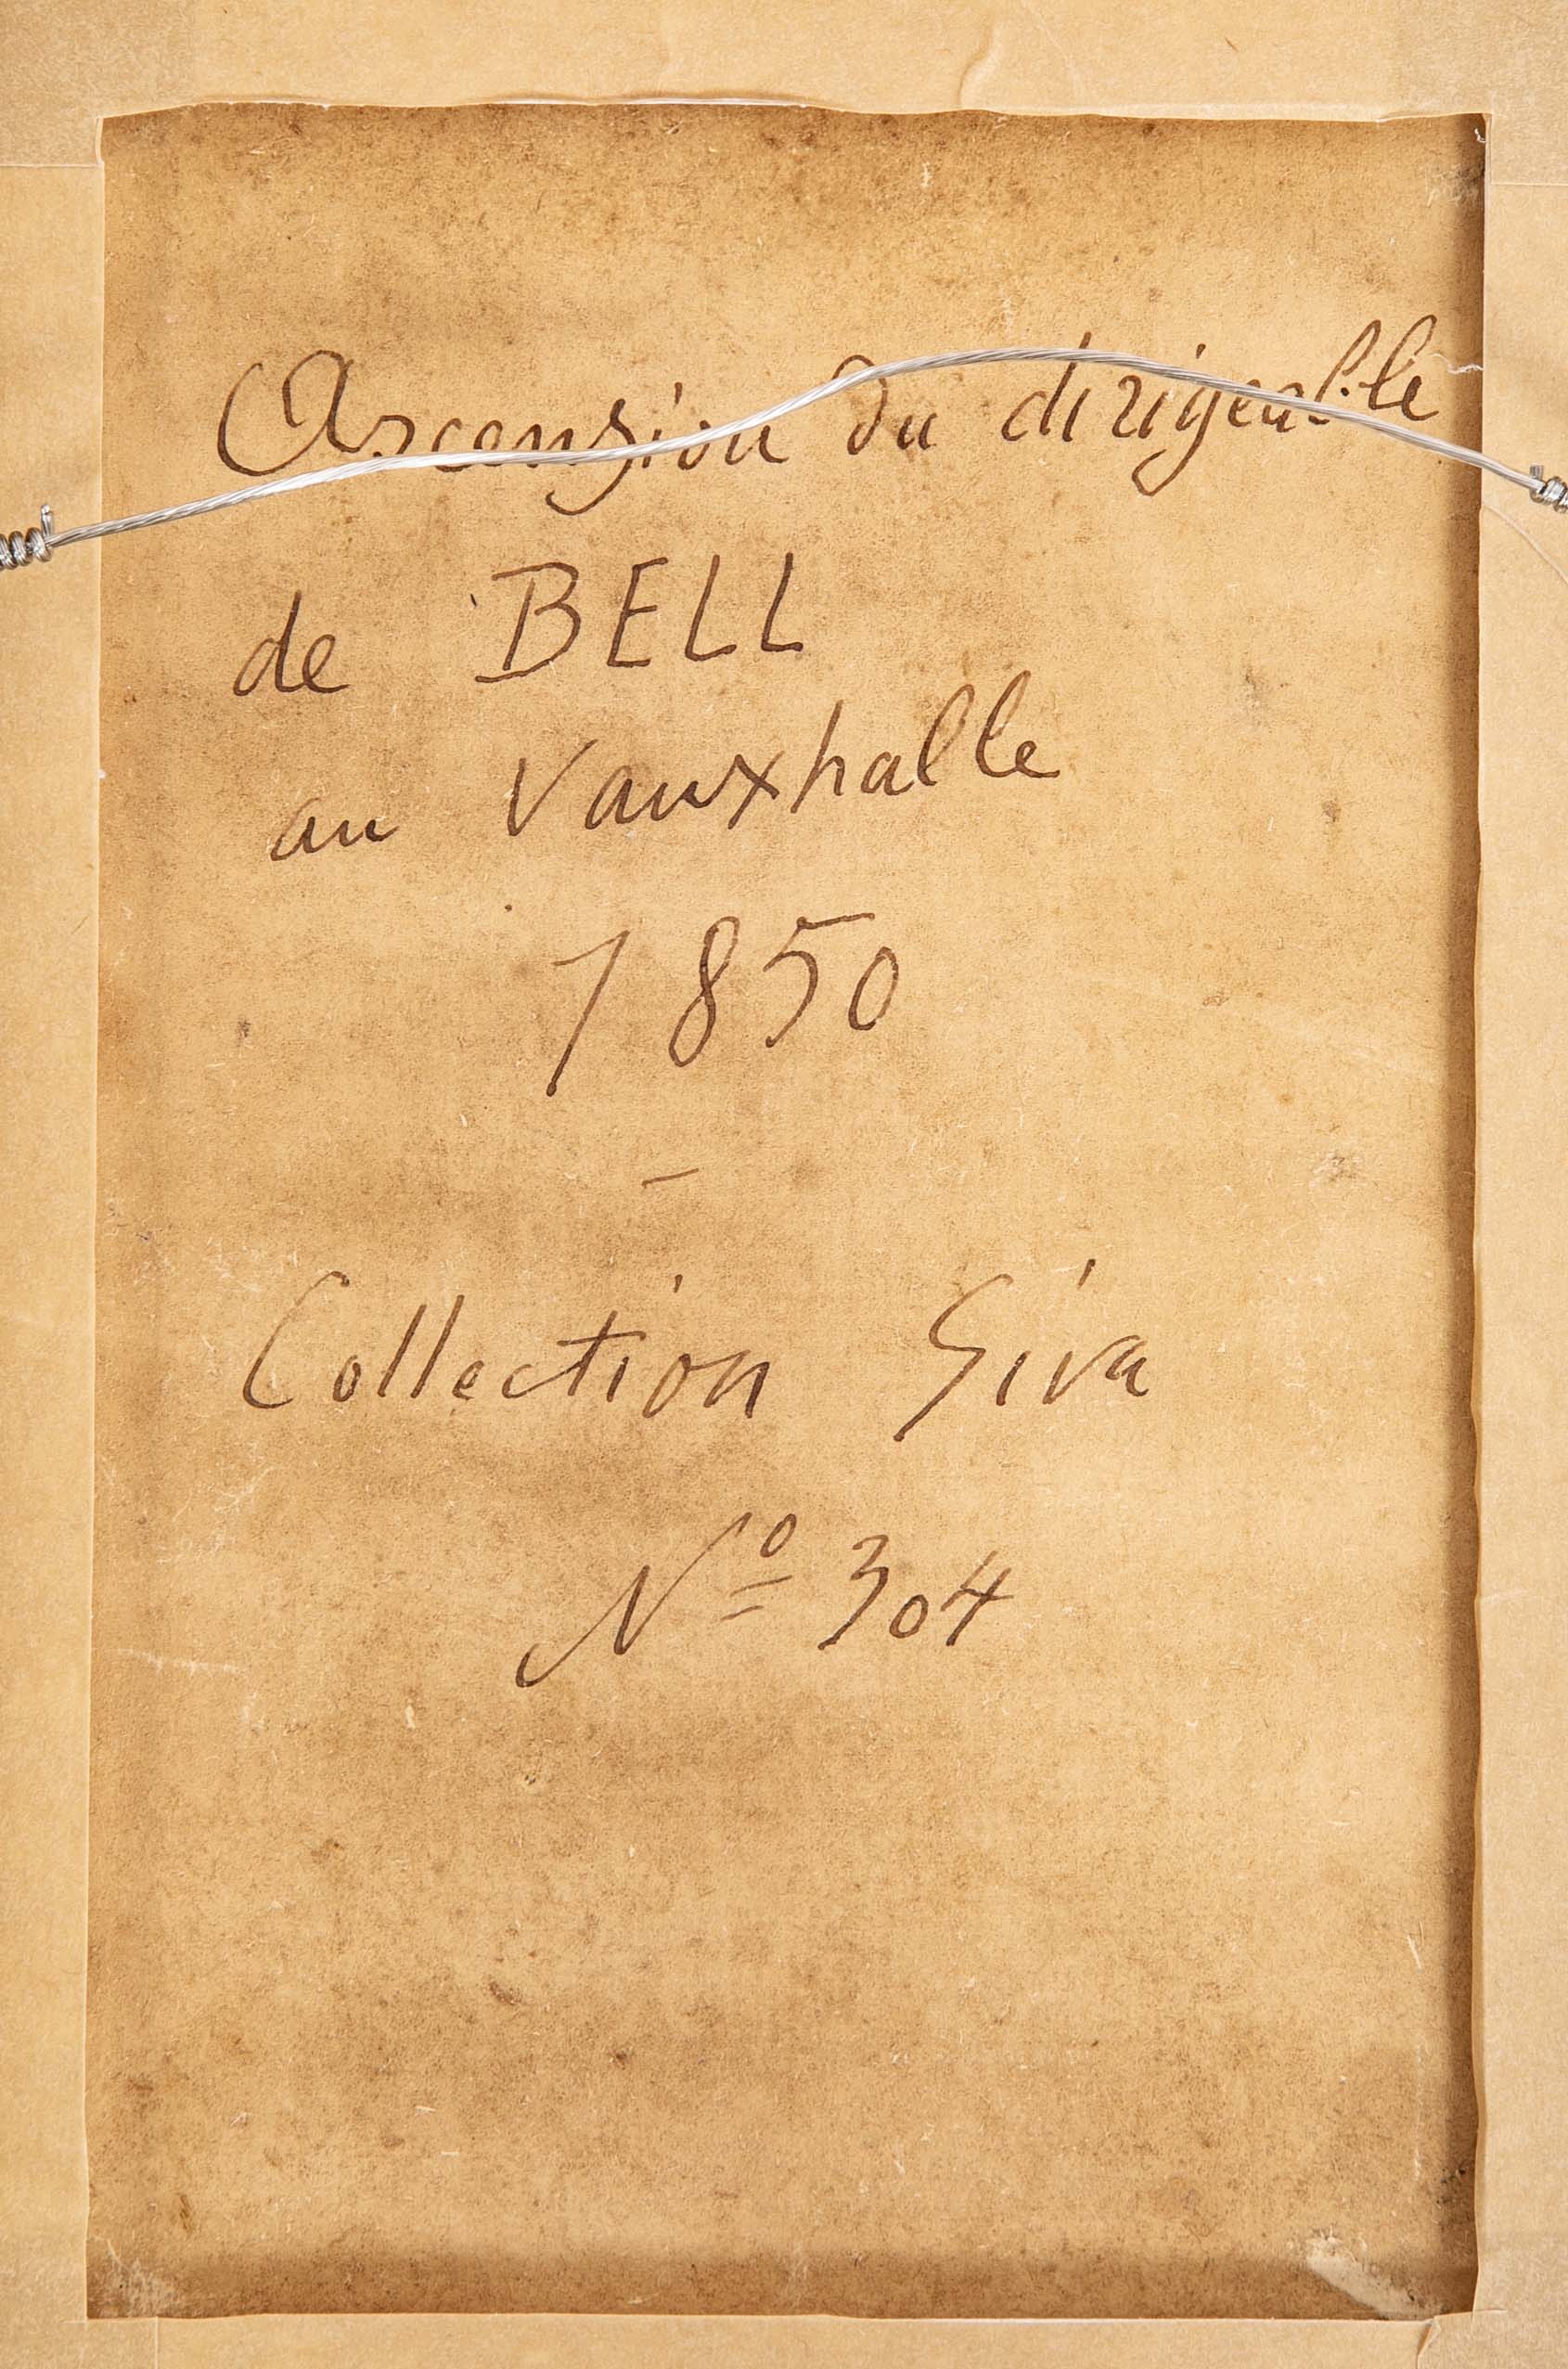 Ascension du dirigeable
de BELL
au Vauxhalle
1850
—
Collection Siva
Nº 304